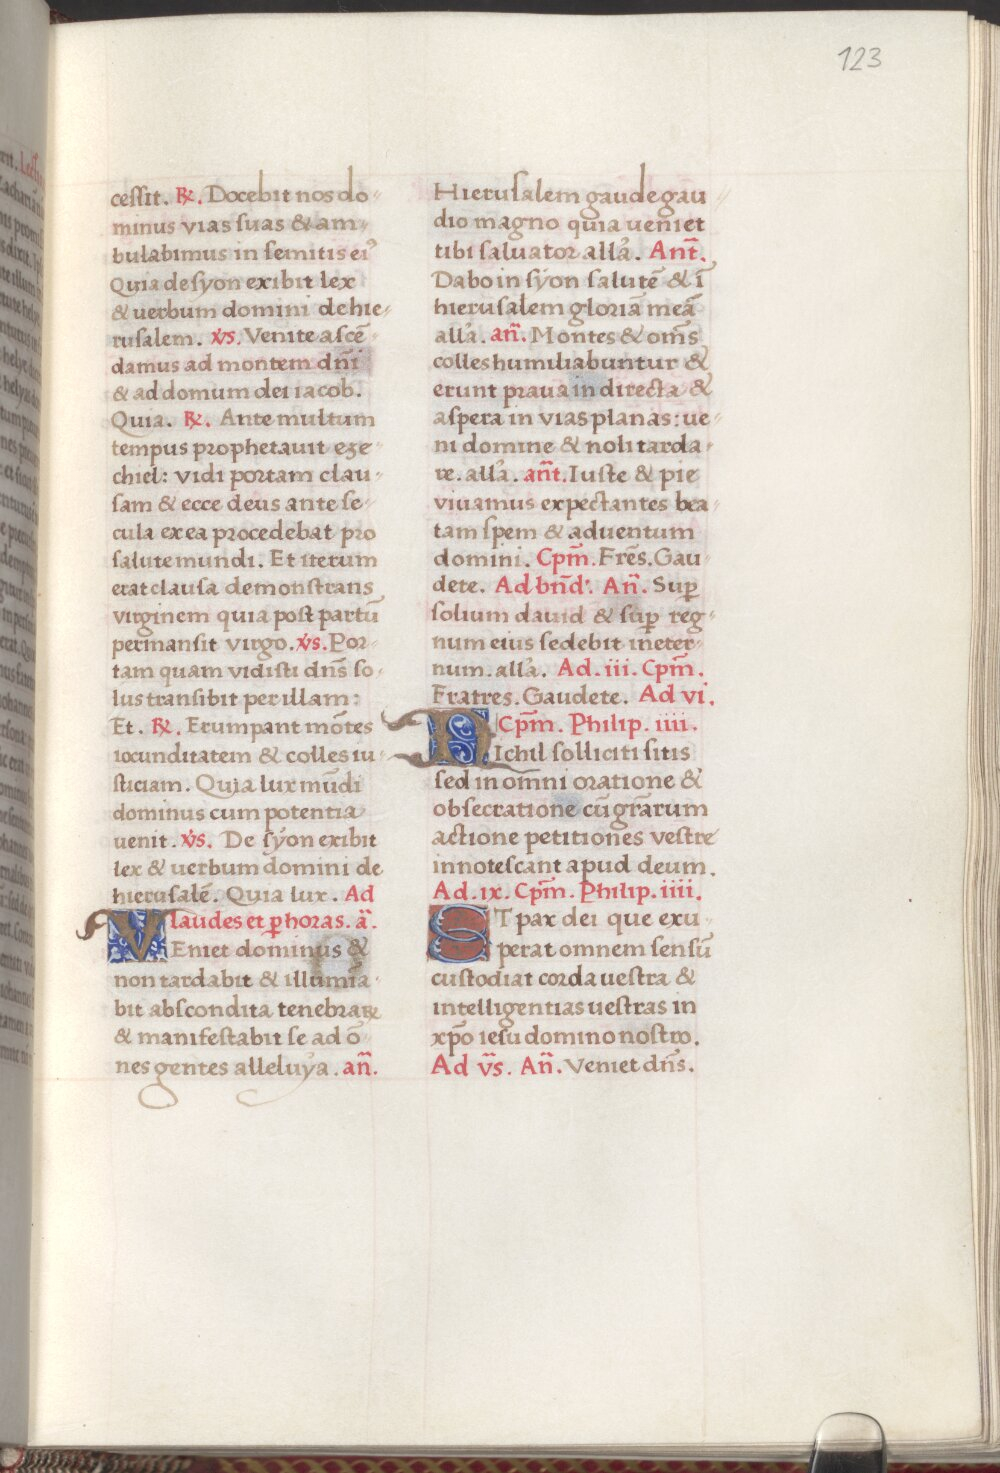 123
cessit. ℟. Docebit nos do-
minus vias suas & am-
bulabimus in semitis ei⁹
Quia de syon exibit lex
& uerbum domini de hie-
rusalem. v̇s. Venite ascē-
damus ad montem dn̄i
& ad domum dei iacob.
Quia. ℟. Ante multum
tempus prophetauit eze-
chiel: vidi portam clau-
sam & ecce deus ante se-
cula ex ea procedebat pro
salute mundi. Et iterum
erat clausa demonstrans
virginem quia post partū
permansit virgo. v̇s. Por-
tam quam vidisti dn̄s so-
lus transibit per illam:
Et. ℟. Erumpant mōtes
iocunditatem & colles iu-
sticiam. Quia lux mūdi
dominus cum potentia
uenit. v̇s. De syon exibit
lex & uerbum domini de
hierusalē. Quia lux. Ad
laudes et ꝑ horas. a̅.
Veniet dominus &
non tardabit & illumina-
bit abscondita tenebraꝝ
& manifestabit se ad ō-
nes gentes alleluya. an̄.
Hierusalem gaude gau-
dio magno quia ueniet
tibi saluator all'a. Ant̄.
Dabo in syon salutē & ī
hierusalem gloriā meā
all'a. an̄. Montes & om̄s
colles humiliabuntur &
erunt praua in directa &
aspera in vias planas: ue-
ni domine & noli tarda-
re. all'a. an̄t. Iuste & pie
viuamus expectantes bea-
tam spem & aduentum
domini. Cpm̄. Frēs. Gau-
dete. Ad bn̄d'. An̄. Suꝑ
solium dauid & suꝑ reg-
num eius sedebit in eter-
num. all'a. Ad. iii. Cpm̄.
Fratres. Gaudete. Ad vi.
Cpm̄. Philip. iiii.
Nichil solliciti sitis
sed in omni oratione &
obsecratione cū gr̄arum
actione petitiones vestre
innotescant apud deum.
Ad. ix. Cpm̄. Philip. iiii.
ET pax dei que exu-
perat omnem sensū
custodiat corda uestra &
intelligentias uestras in
xp̄o iesu domino nostro.
Ad v̄s. An̄. Veniet dn̄s.